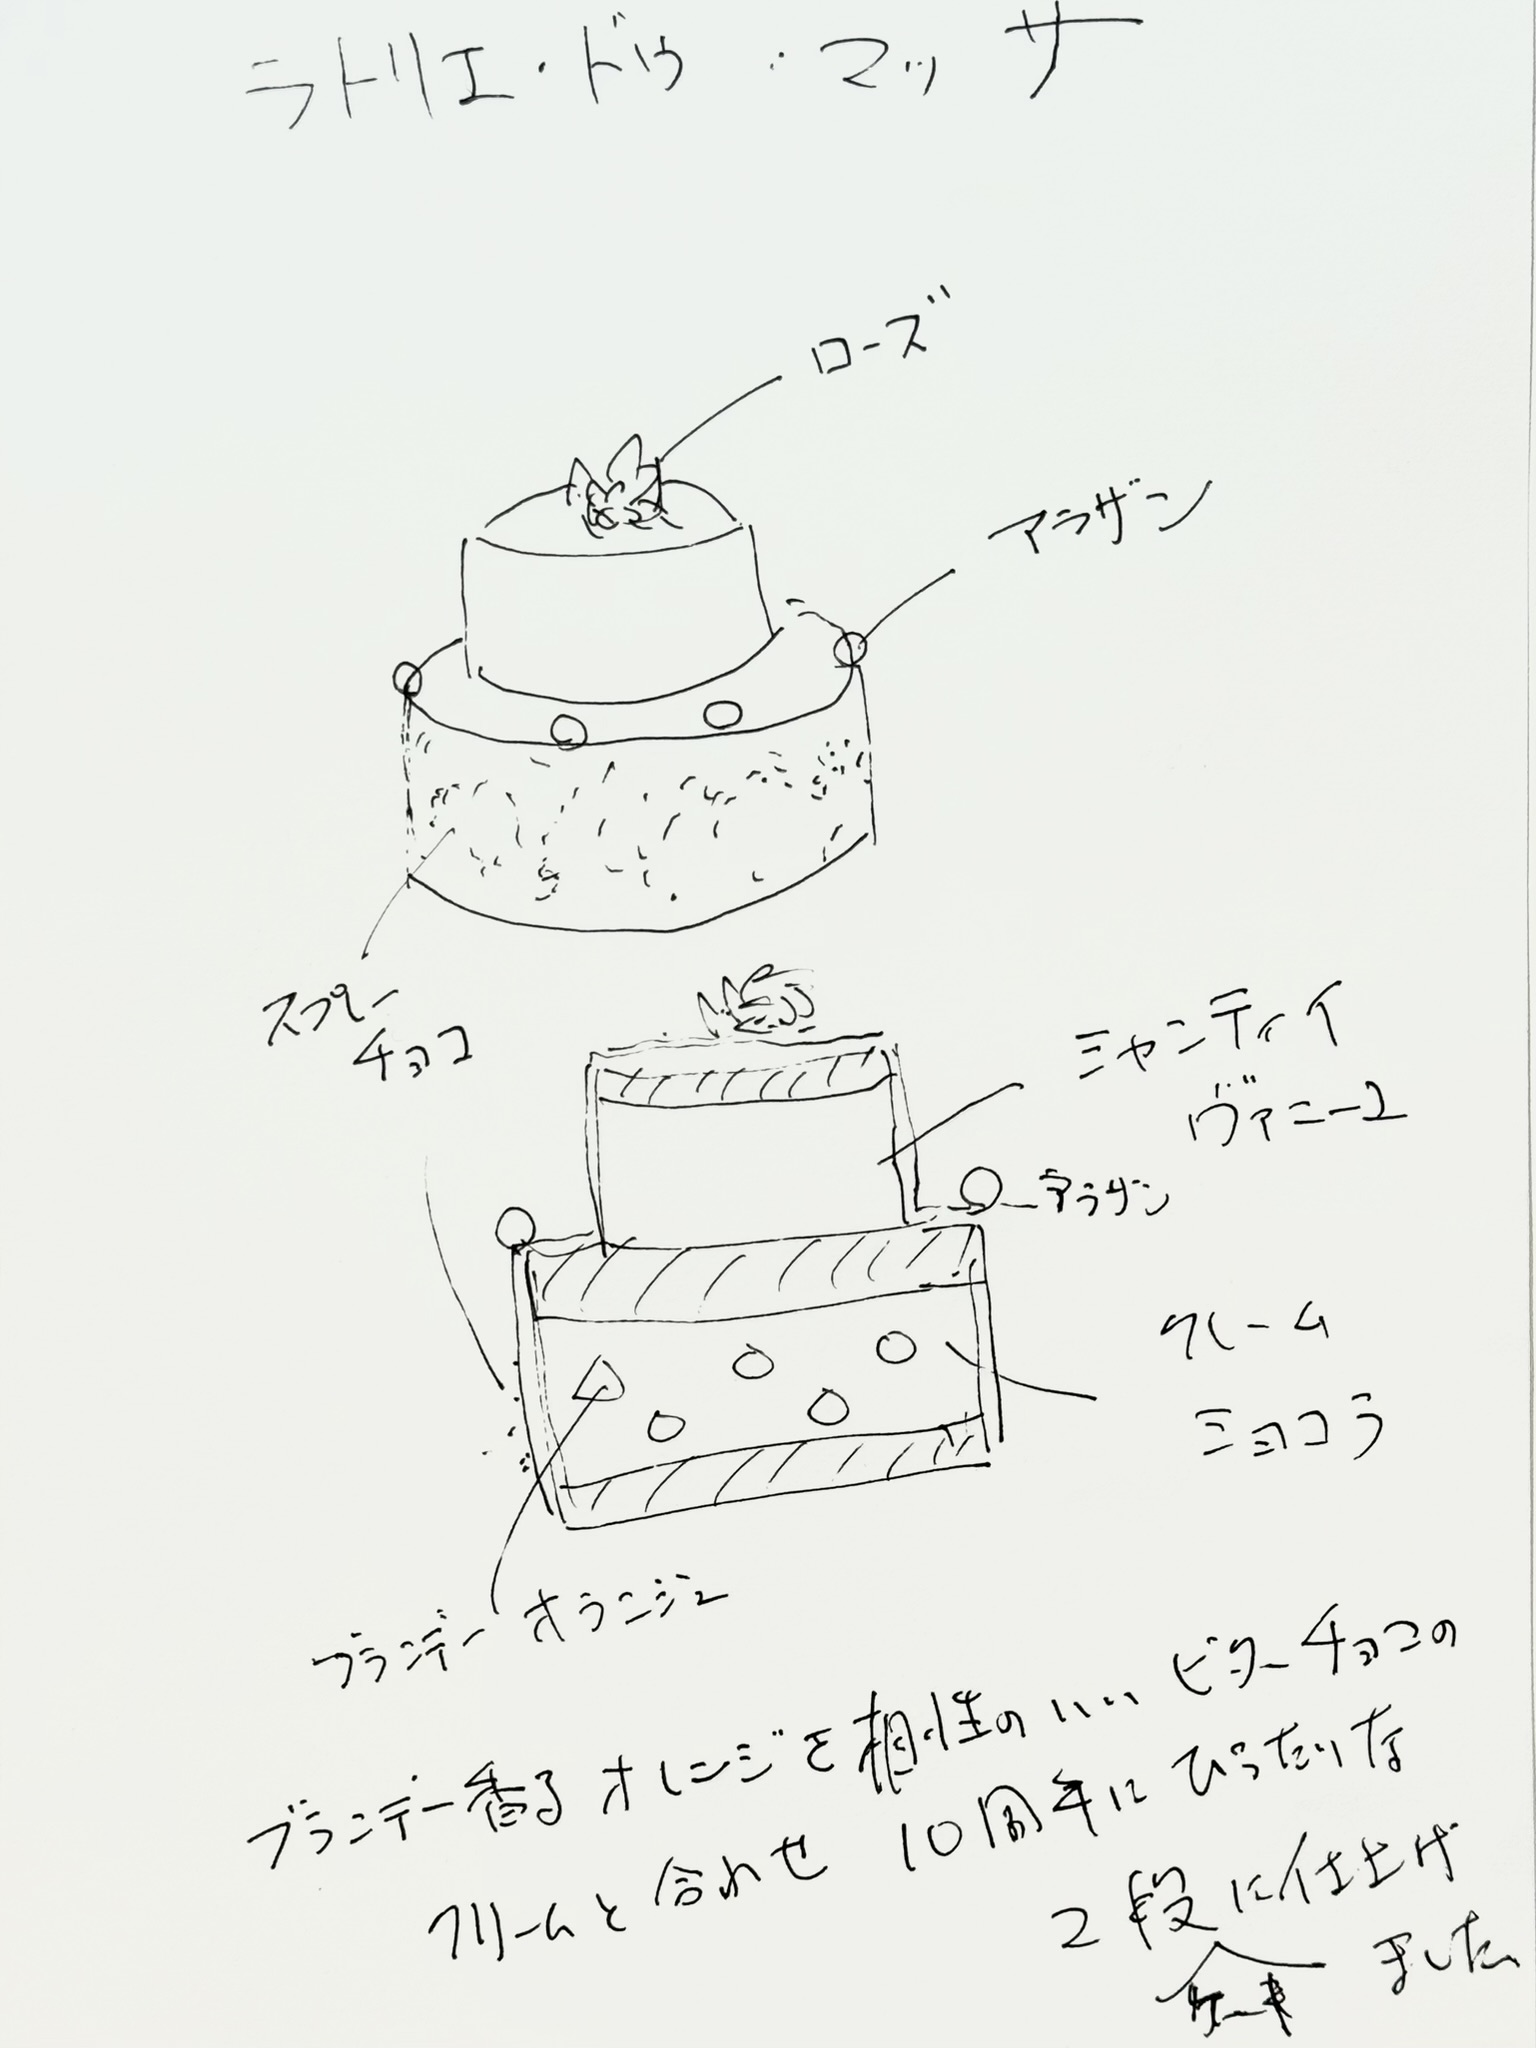 ラトリエ・ドゥ・マッサ
ローズ
アラザン
スプレー
チョコ
シャンティイ
ヴァニーユ
アラザン
クレーム
ショコラ
ブランデー オランジュ
ブランデー香るオレンジを相性のいいビターチョコの
クリームと合わせ 10周年にぴったりな
2段に仕上げ
ケーキ ました